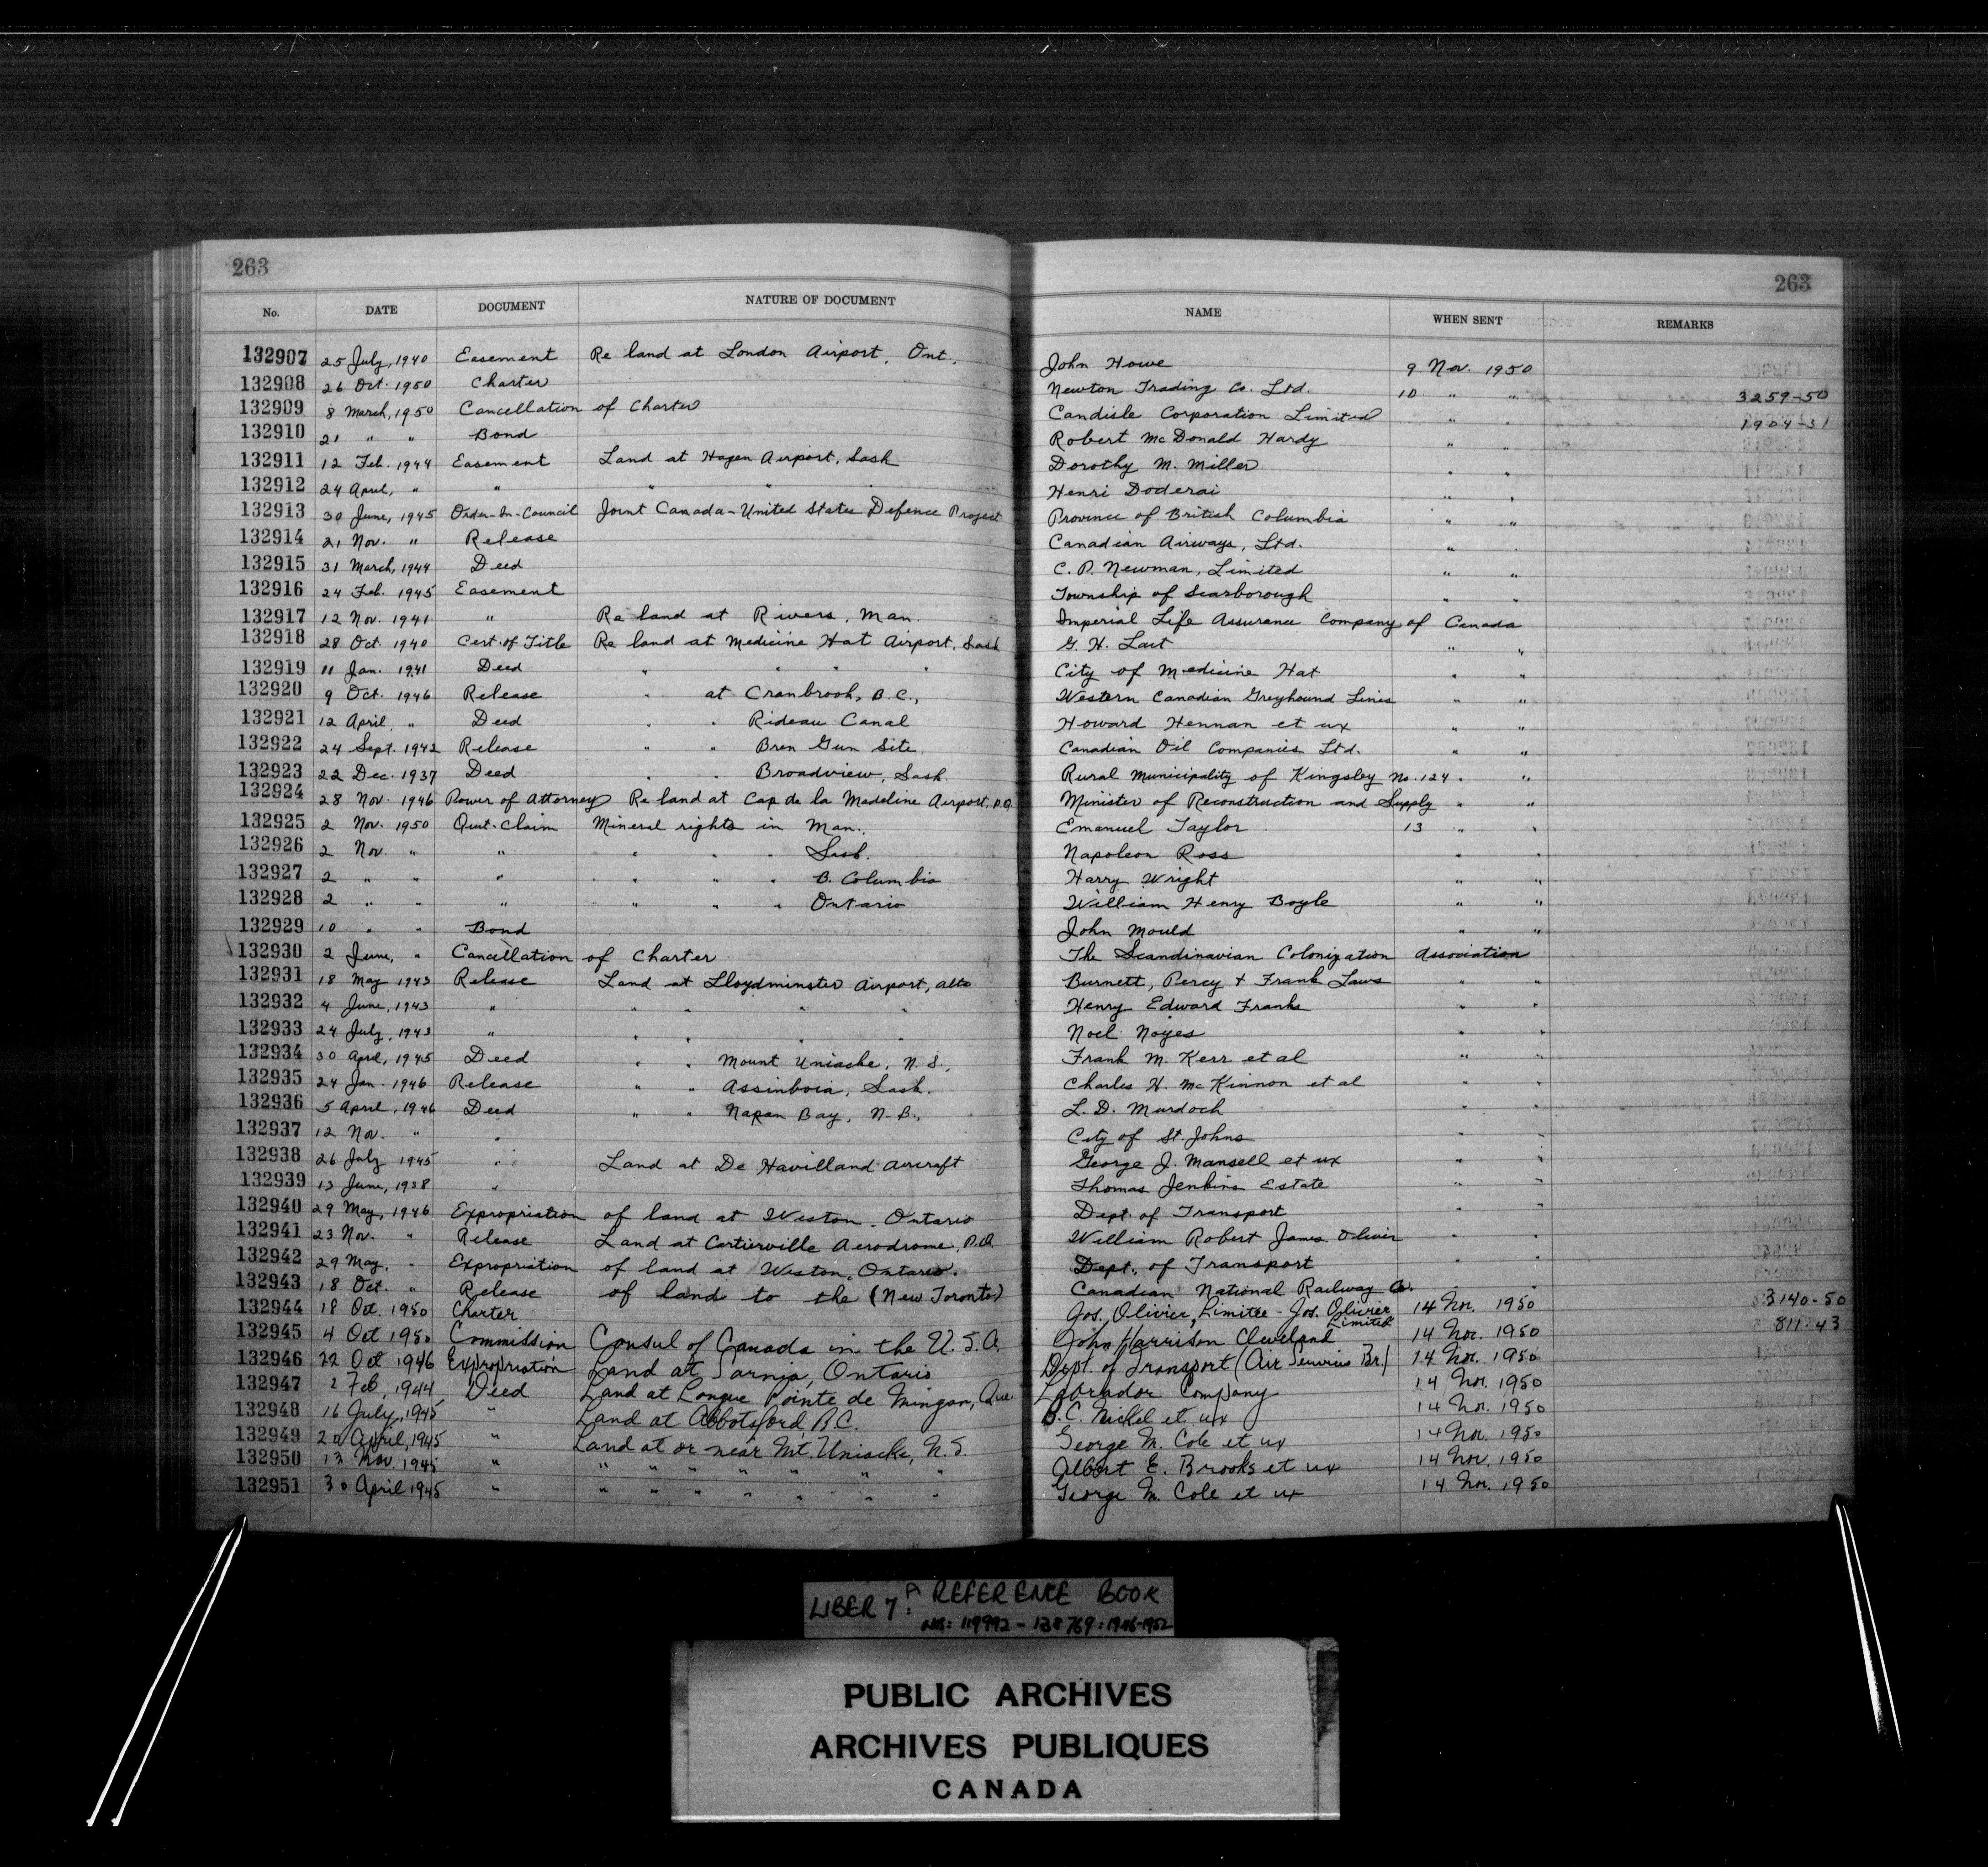 263 263
No. DATE DOCUMENT NATURE OF DOCUMENT NAME WHEN SENT REMARKS
132907 25 July, 1940 Easement Re land at London Airport, Ont., John Howe 9 Nov. 1950
132908 26 Oct. 1950 Charter Newton Trading Co. Ltd. 10 " " 3259-50
132909 8 March, 1950 Cancellation of Charter Candisle Corporation Limited " " 1904-31
132910 21 " " Bond Robert McDonald Hardy " "
132911 12 Feb. 1944 Easement Land at Hagen Airport, Sask Dorothy M. Miller " "
132912 24 April, " " " " " Henri Doderai " "
132913 30 June, 1945 Order-In-Council Joint Canada-United States Defence Project Province of British Columbia " "
132914 21 Nov. " Release Canadian Airways, Ltd. " "
132915 31 March, 1944 Deed C. P. Newman, Limited " "
132916 24 Feb. 1945 Easement Township of Scarborough " "
132917 12 Nov. 1941 " Re land at Rivers, Man. Imperial Life Assurance Company of Canada
132918 28 Oct. 1940 Cert. of Title Re land at Medicine Hat Airport, Sask G. H. Last " "
132919 11 Jan. 1941 Deed " " " " City of Medicine Hat " "
132920 9 Oct. 1946 Release " at Cranbrook, B.C., Western Canadian Greyhound Lines " "
132921 12 April, " Deed " " Rideau Canal Howard Hennan et ux " "
132922 24 Sept. 1942 Release " " Bren Gun Site Canadian Oil Companies Ltd. " "
132923 22 Dec. 1937 Deed " " Broadview, Sask. Rural Municipality of Kingsley No. 124 " "
132924 28 Nov. 1946 Power of Attorney Re land at Cap de la Madeline Airport, P.Q. Minister of Reconstruction and Supply " "
132925 2 Nov. 1950 Quit-Claim Mineral rights in Man., Emanuel Taylor 13 " "
132926 2 Nov. " " " " " Sask. Napoleon Ross " "
132927 2 " " " " " " B. Columbia Harry Wright " "
132928 2 " " " " " " Ontario William Henry Boyle " "
132929 10 " " Bond John Mould " "
132930 2 June, " Cancellation of Charter The Scandinavian Colonization Association
132931 18 May 1943 Release Land at Lloydminster Airport, Alta Burnett, Percy + Frank Laws " "
132932 4 June, 1943 " " " " " Henry Edward Franks " "
132933 24 July, 1943 " " " " " Noel Noyes " "
132934 30 April, 1945 Deed " " Mount Uniacke, N.S., Frank M. Kerr et al " "
132935 24 Jan. 1946 Release " " Assinboia, Sask. Charles H. McKinnon et al " "
132936 5 April, 1946 Deed " " Napan Bay, N.B., L. D. Murdoch " "
132937 12 Nov. " " City of St. Johns " "
132938 26 July 1945 " Land at De Havilland Aircraft George J. Mansell et ux " "
132939 13 June, 1938 " Thomas Jenkins Estate " "
132940 29 May, 1946 Expropriation of land at Weston, Ontario Dept. of Transport " "
132941 23 Nov. " Release Land at Cartierville Aerodrome, P.Q. William Robert James Oliver " "
132942 29 May, " Expropriation of land at Weston, Ontario. Dept. of Transport " "
132943 18 Oct. " Release of land to the (New Toronto) Canadian National Railway Co. " "
132944 18 Oct. 1950 Charter Jos. Olivier, Limitée - Jos. Olivier Limited 14 Nov. 1950 3140-50
132945 4 Oct 1950 Commission Consul of Canada in the U.S.A. John Harrison Cleveland 14 Nov. 1950 811-43
132946 22 Oct 1946 Expropriation Land at Sarnia, Ontario Dept. of Transport (Air Services Br.) 14 Nov. 1950
132947 2 Feb, 1944 Deed Land at Longue Pointe de Mingan, Que. Labrador Company 14 Nov. 1950
132948 16 July, 1945 " Land at Abbotsford, B.C. B.C. Nickel et ux 14 Nov. 1950
132949 20 April, 1945 " Land at or near Mt. Uniacke, N.S. George M. Cole et ux 14 Nov. 1950
132950 13 Nov. 1945 " " " " " " " " Albert E. Brooks et ux 14 Nov. 1950
132951 30 April 1945 " " " " " " " " George M. Cole et ux 14 Nov. 1950
LIBER 7A: REFERENCE BOOK
NOS: 119992 - 138769: 1946-1952
PUBLIC ARCHIVES
ARCHIVES PUBLIQUES
CANADA